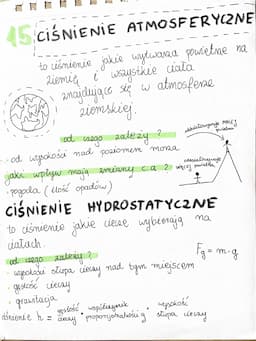 15. CIŚNIENIE ATMOSFERYCZNE
to ciśnienie jakie wytwarza powietrze na
ziemię i wszystkie ciała
znajdujące się w atmosferze
ziemskiej.
od czego zależy?
· od wysokości nad poziomem morza
jaki wpływ mają zmiany c.a?
· pogoda (ilość opadów)
CIŚNIENIE HYDROSTATYCZNE
to ciśnienie jakie ciecze wybierają na
ciałach.
od czego zależy?
Fg = m·g
· wysokości słupa cieczy nad tym miejscem
· gęstość cieczy
· grawitacja
ciśnienie h = gęstość cieczy · współczynnik proporcjonalności g · wysokość słupa cieczy